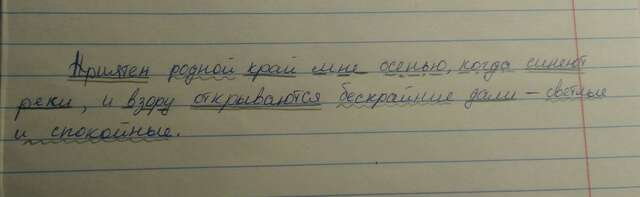 Приятен родной край мне осенью, когда синеют
реки, и взору открываются бескрайние дали – светлые
и спокойные.